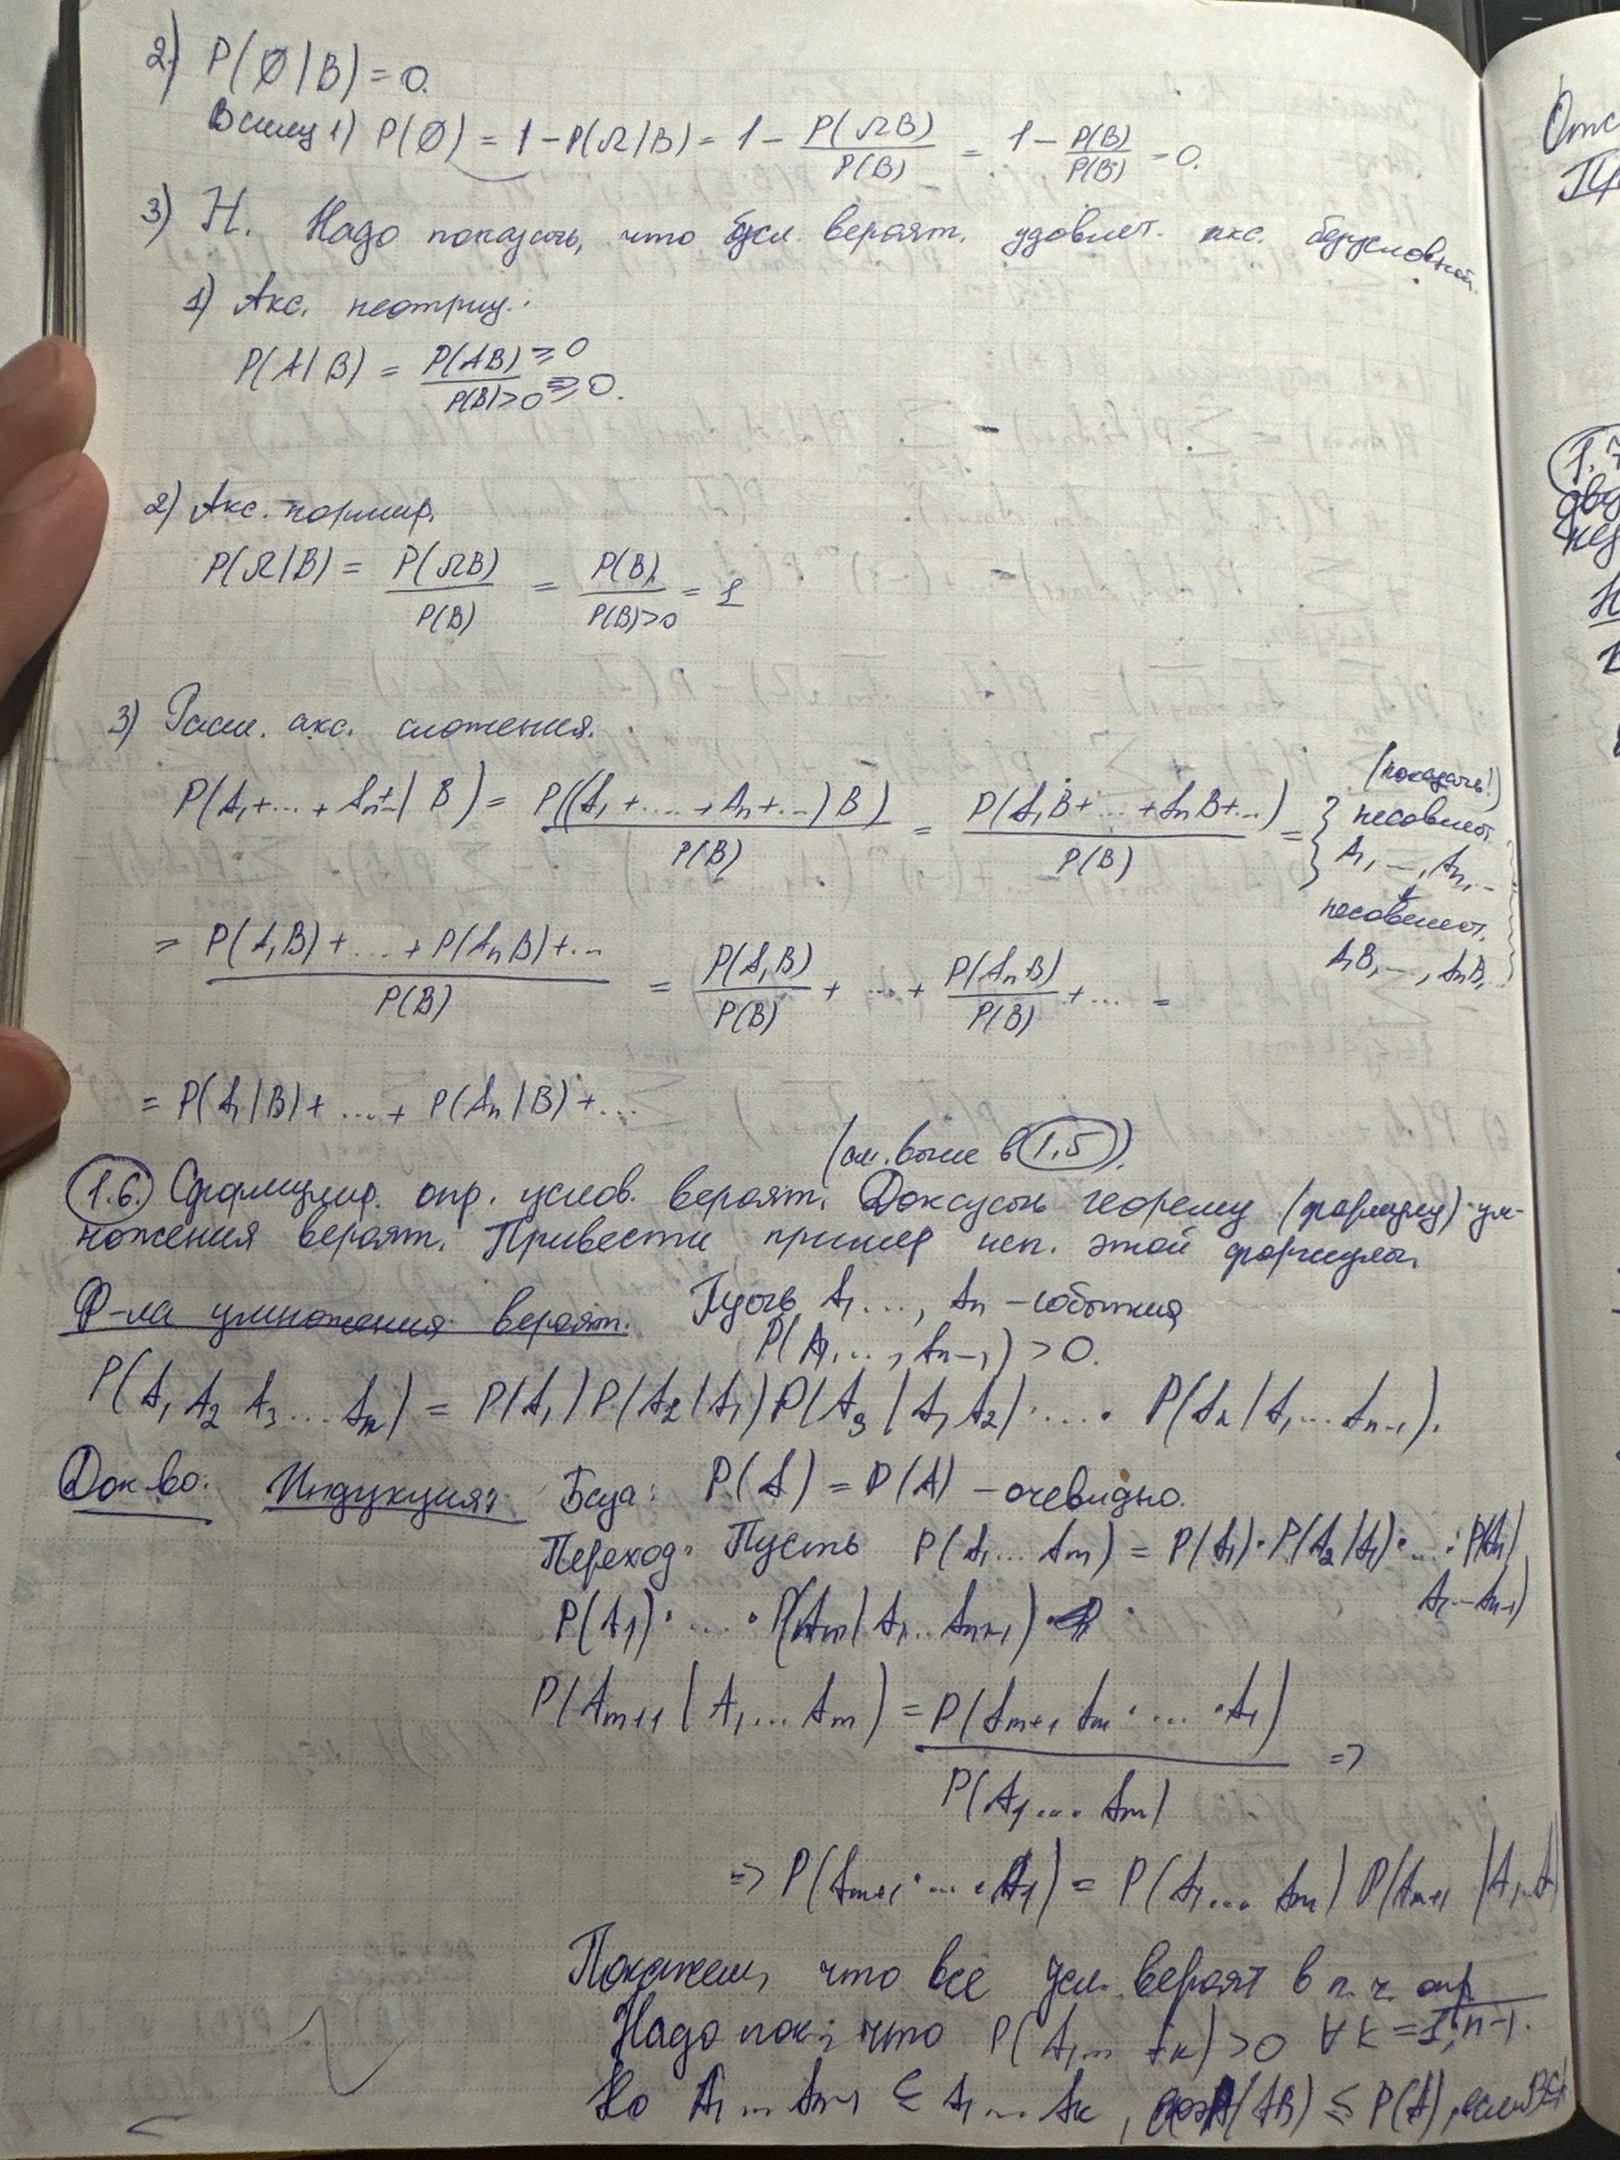 2) P(∅|B) = 0.
В силу 1) P(∅) = 1 - P(Ω|B) = 1 - P(ΩB)/P(B) = 1 - P(B)/P(B) = 0.
3) Н. Надо показать, что усл. вероят. удовлет. акс. безусловной.
1) Акс. неотриц.:
P(A|B) = P(AB) ≥ 0 / P(B) > 0 ≥ 0.
2) Акс. нормир.
P(Ω|B) = P(ΩB)/P(B) = P(B)/P(B)>0 = 1
3) Расш. акс. сложения.
P(A₁+...+Aₙ+...|B) = P((A₁+...+Aₙ+...)B)/P(B) = P(A₁B+...+AₙB+...)/P(B) = { (показать!) несовмест. A₁, ..., Aₙ, ... ↓ несовмест. A₁B, ..., AₙB, ... }
= P(A₁B)+...+P(AₙB)+.../P(B) = P(A₁B)/P(B) + ... + P(AₙB)/P(B) + ... =
= P(A₁|B) + ... + P(Aₙ|B) + ...
(см. выше в 1.5).
1.6. Сформулир. опр. услов. вероят. Доказать теорему (формулу) ум-
ножения вероят. Привести пример исп. этой формулы.
Ф-ла умножения вероят. Пусть A₁ ..., Aₙ - события
P(A₁, ..., Aₙ₋₁) > 0.
P(A₁ A₂ A₃ ... Aₙ) = P(A₁) P(A₂|A₁) P(A₃|A₁A₂) · ... · P(Aₙ|A₁...Aₙ₋₁).
Док-во: Индукция: База: P(A) = P(A) - очевидно.
Переход: Пусть P(A₁...Aₘ) = P(A₁)·P(A₂|A₁)·...·P(Aₙ|
A₁...Aₙ₋₁)
P(A₁)· ... ·P(Aₘ|A₁...Aₘ₋₁)·
P(Aₘ₊₁|A₁...Aₘ) = P(Aₘ₊₁ Aₘ· ... ·A₁)/P(A₁...Aₘ) =>
=> P(Aₘ₊₁· ... ·A₁) = P(A₁...Aₘ) P(Aₘ₊₁|A₁..A
Покажем, что все усл. вероят в п.ч. опр
Надо пок, что P(A₁...Aₖ) > 0 ∀ k = 1, n-1.
Но A₁...Aₙ₋₁ ⊆ A₁...Aₖ, P(AB) ≤ P(A), если